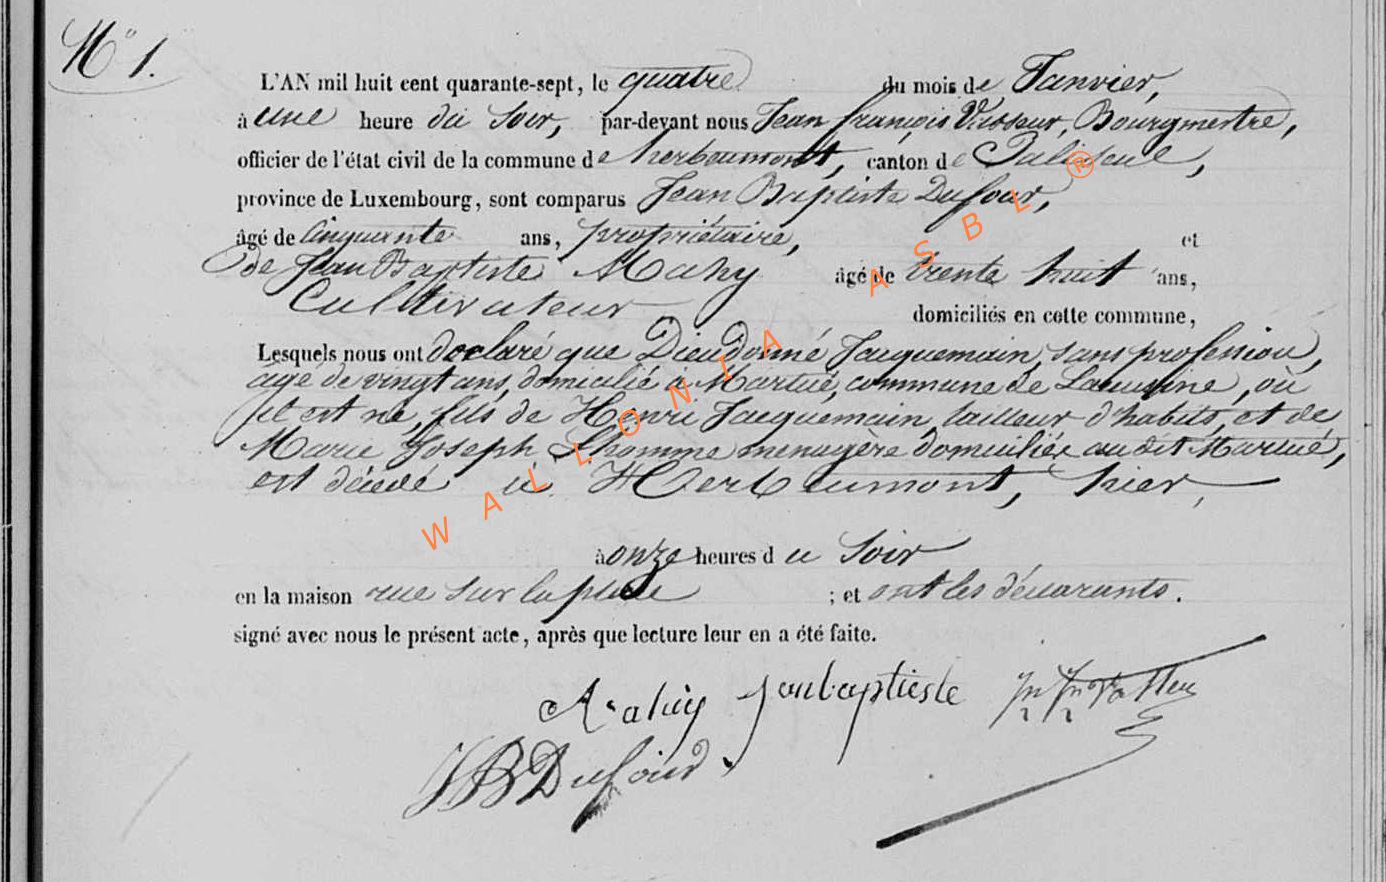 No 1.
L'AN mil huit cent quarante-sept, le quatre du mois de Janvier,
à une heure du soir, par-devant nous Jean françois Bourgmestre,
officier de l'état civil de la commune de herbeumont, canton de Paliseul,
province de Luxembourg, sont comparus Jean Baptiste Dufour,
âgé de Cinquante ans, propriétaire, et
de Jean Baptiste Mahy âgé de trente huit ans,
Cultivateur domiciliés en cette commune,
Lesquels nous ont declaré que Dieudonné Jacquemain, sans profession,
agé de vingt ans, domicilié à Martué, commune de Lacuisine, où
il est né, fils de Henri Jacquemain, tailleur d'habits, et de
Marie Joseph Lhomme menagère domiciliée au dit Martué,
est décédé à Herbeumont, hier,
à onze heures du Soir
en la maison rue sur la place ; et ont les déclarants.
signé avec nous le présent acte, après que lecture leur en a été faite.
Mahy jeanbaptieste
JB Dufour
WALLONIA ASBL ®